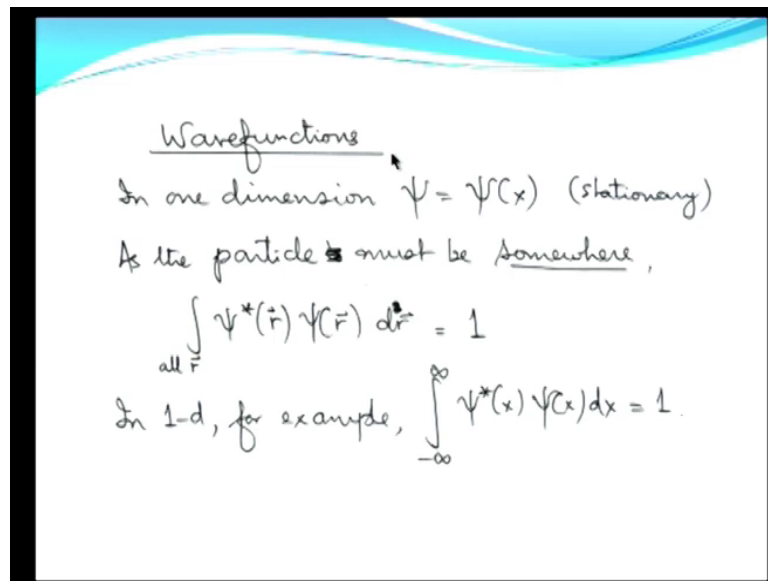 Wavefunctions
In one dimension ψ = ψ(x) (stationary)
As the particle must be somewhere,
∫ ψ*(r⃗) ψ(r⃗) dr⃗ = 1
all r⃗
In 1-d, for example, ∫_{-∞}^{∞} ψ*(x) ψ(x) dx = 1.